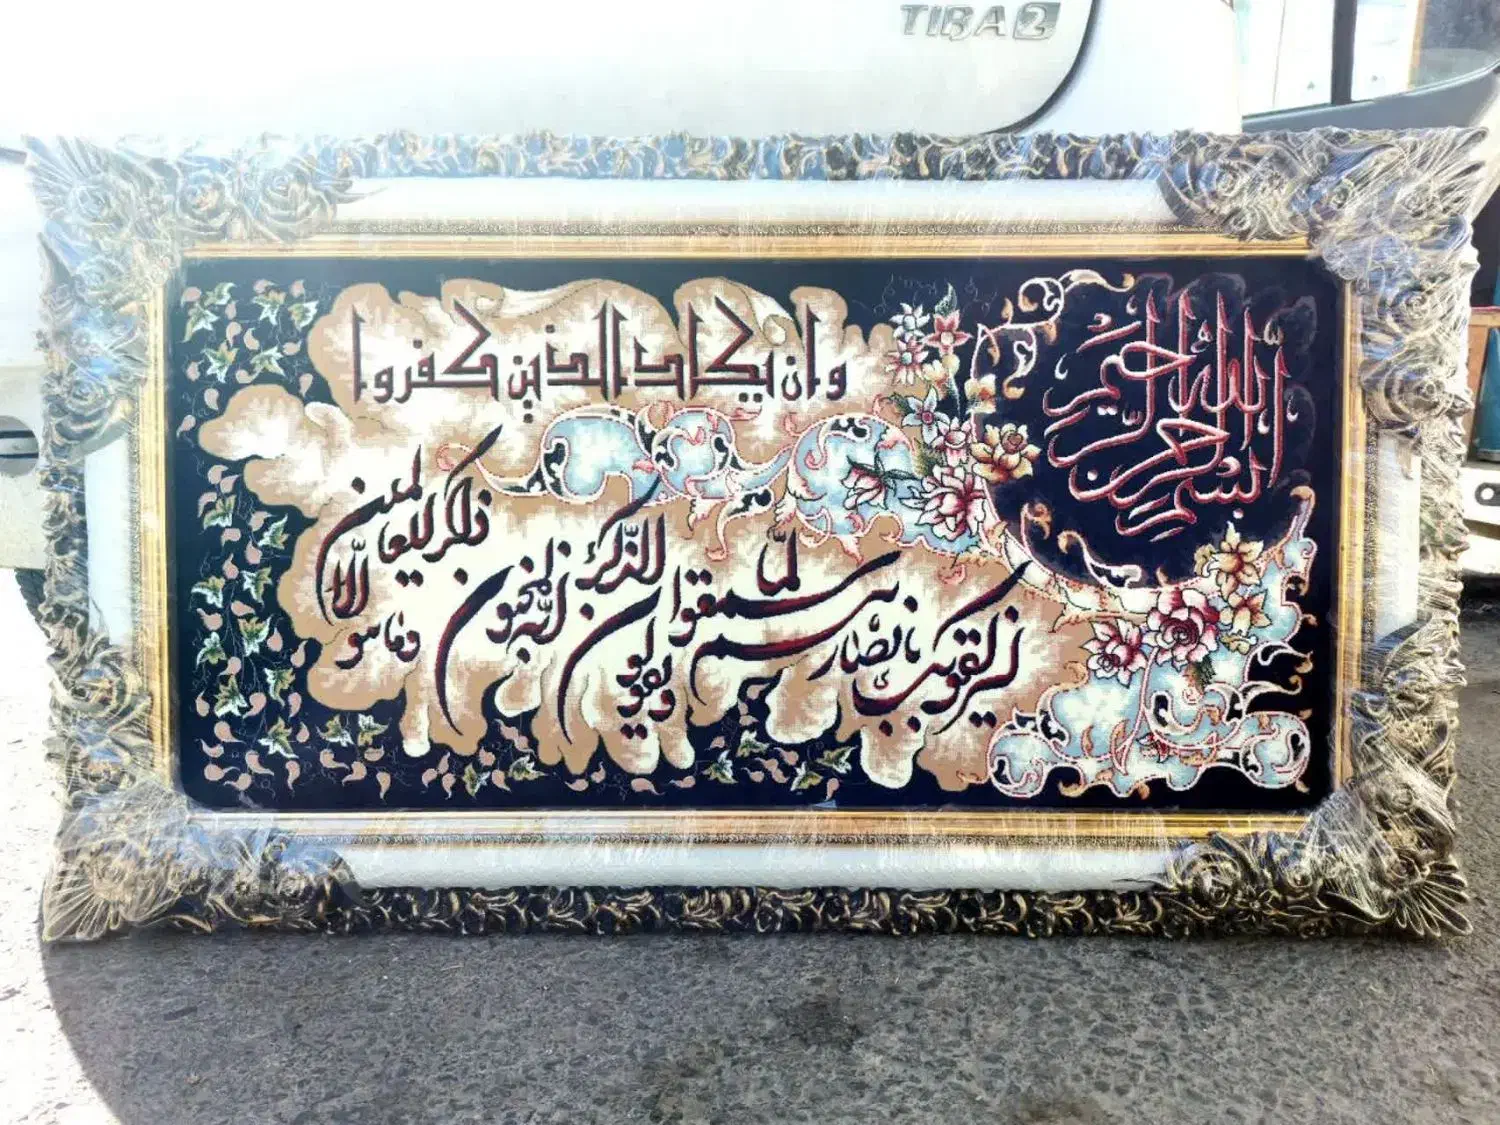 TIBA 2
بسم الله الرحمن الرحيم
وان يكاد الذين كفروا
ليزلقونك بابصارهم لما سمعوا الذكر
ويقولون انه لمجنون
وما هو الا ذكر للعالمين